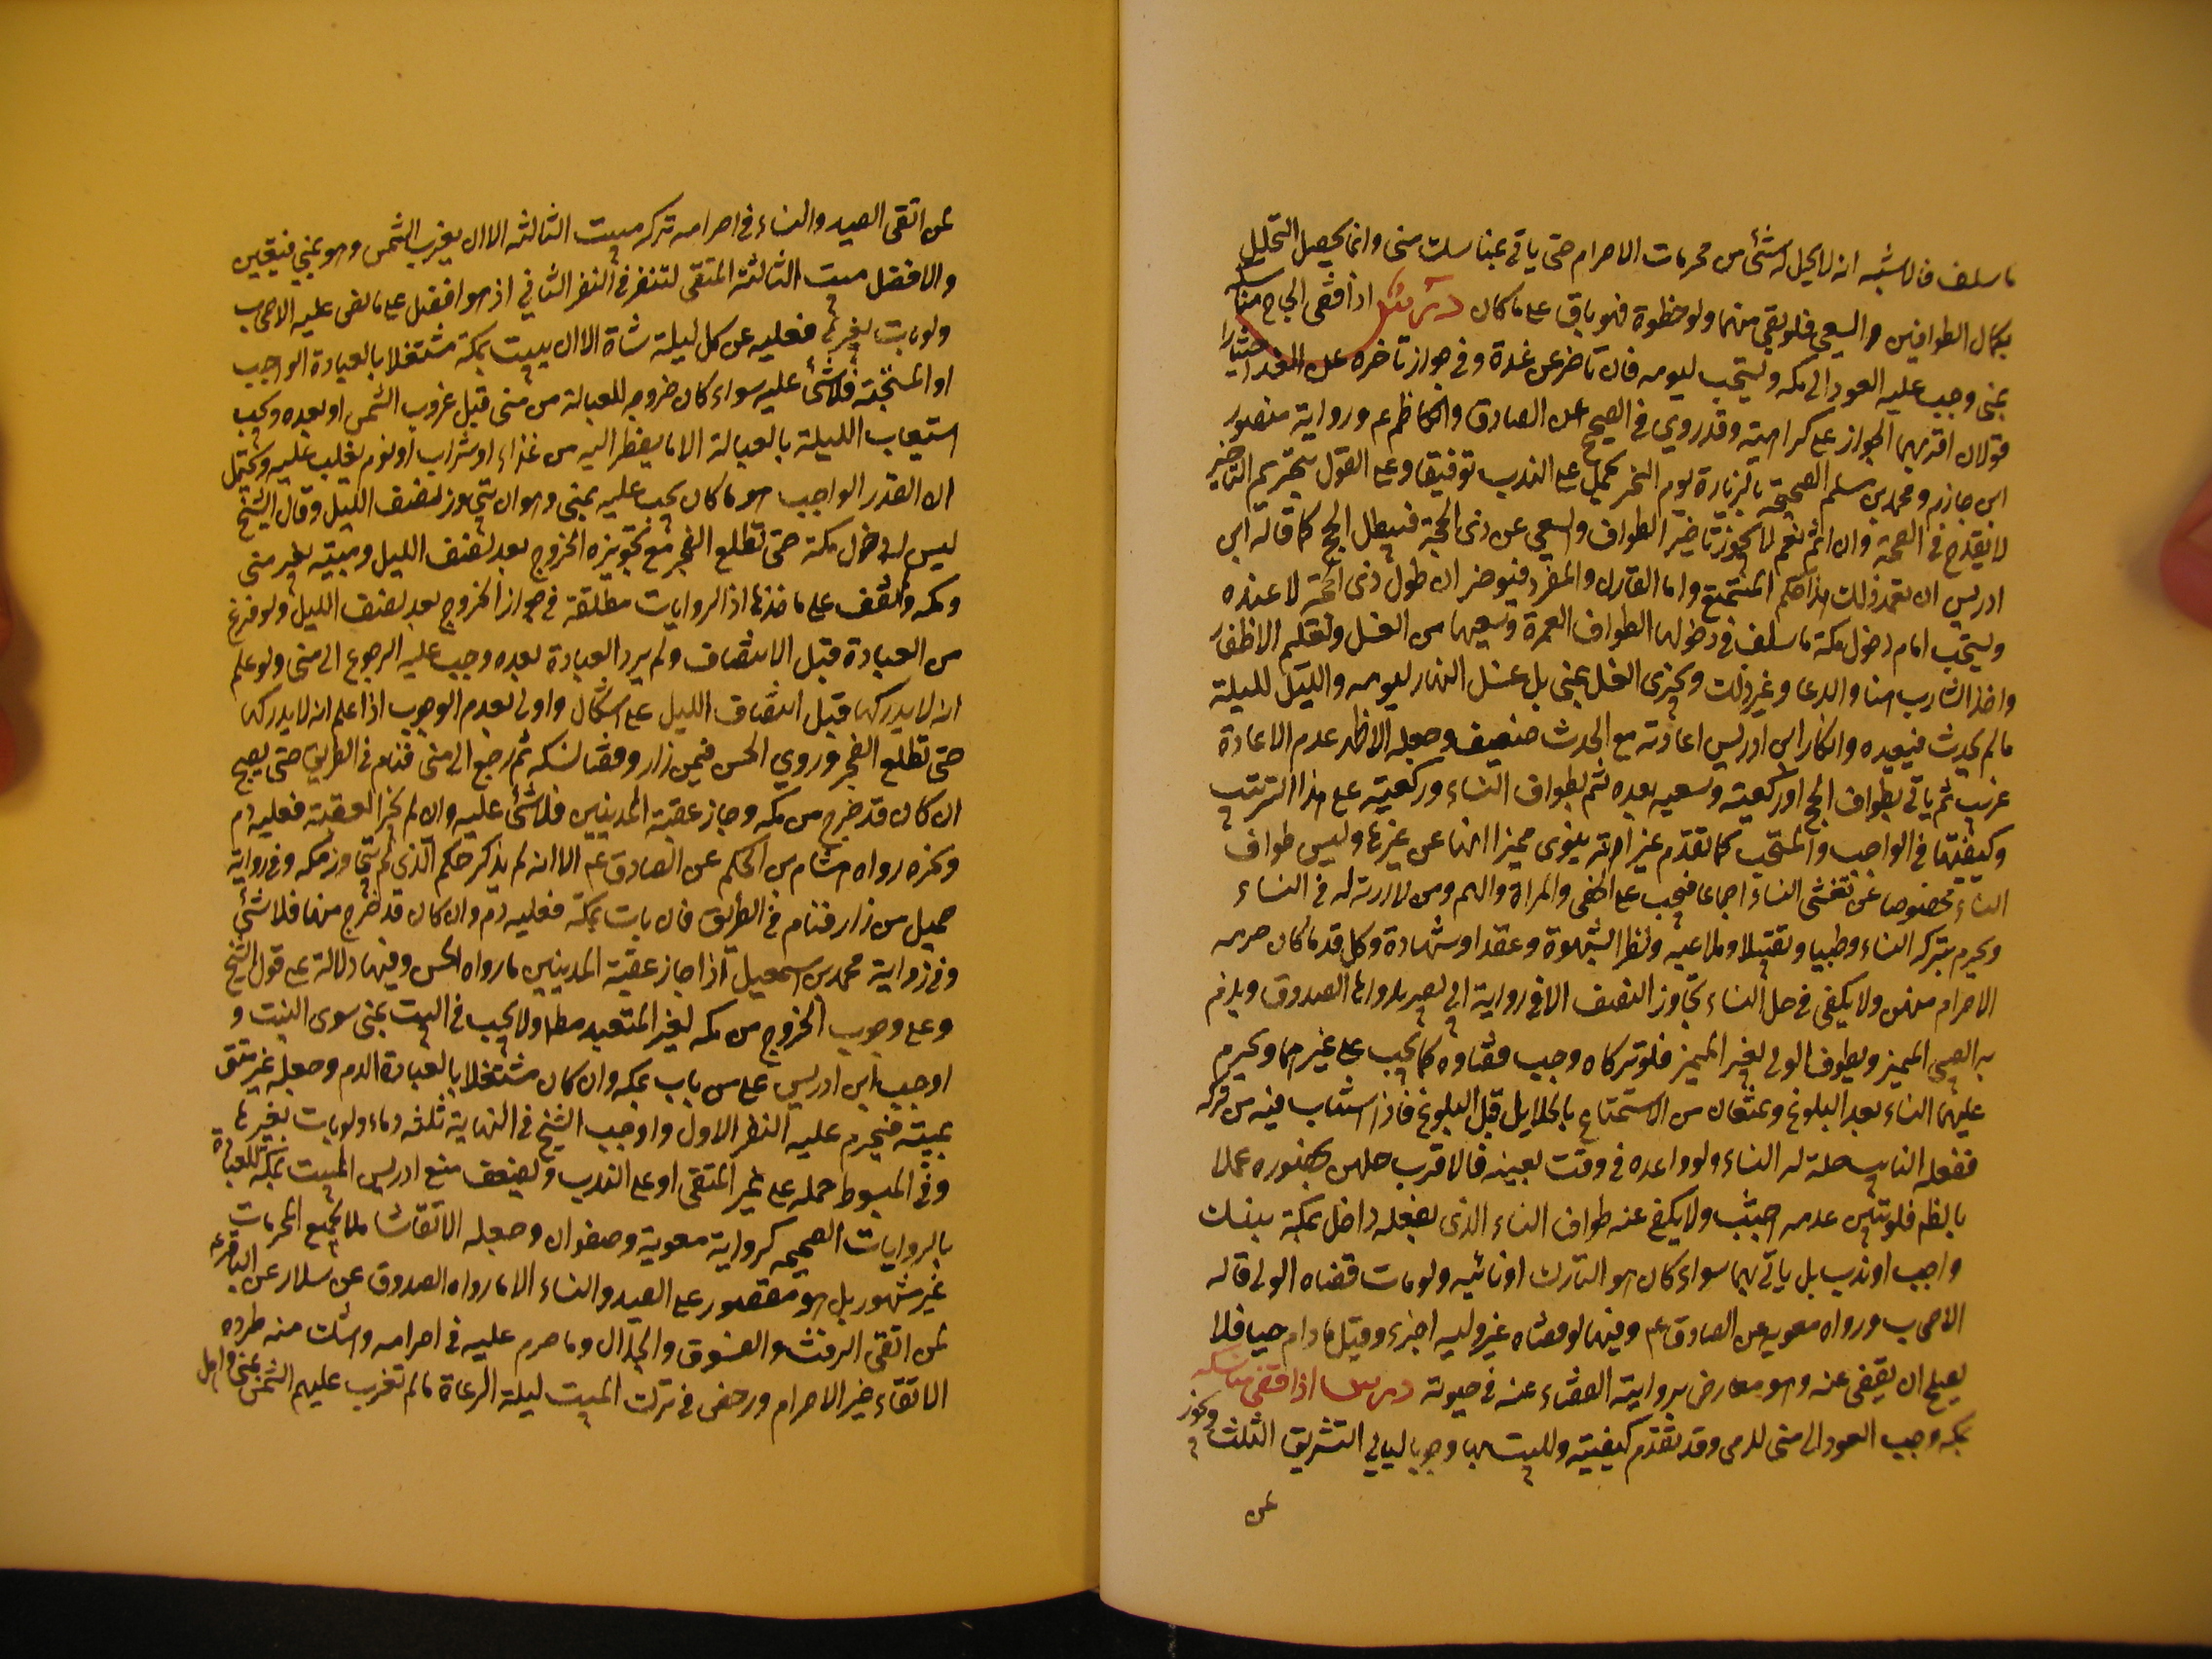 ما سلف فالاشبه انه لا يحل له شئ من محرمات الاحرام حتى ياتي بمناسك منى وانما يحصل التحليل
بكمال الطوافين والسعي فلو بقي منهما ولو خطوة فهو باق على ما كان درس اذا قضى الحاج مناسكه
بمنى وجب عليه العود الى مكه ويستحب ليومه فان تاخر عن غده وفي جواز تاخره عن الغد اختيارا
قولان اقربهما الجواز على كراهيته وقد روي في الصحيح عن الصادق والكاظم ع ورواية منصور
ابن حازم ومحمد بن مسلم الصحيحة بالزيارة يوم النحر تحمل على الندب توفيقا وعلى القول بتحريم التاخير
لا يقدح في الصحة وان اثم نعم لا يجوز تاخير الطواف والسعي عن ذى الحجة فيبطل الحج كما قاله ابن
ادريس ان تعمد ذلك هذا حكم المتمتع واما القارن والمفرد فيوخران طول ذى الحجة لا عنده
ويستحب امام دخول مكة ما سلف في دخولها لطواف العمرة وسعيها من الغسل وتقليم الاظفار
واخذ الشارب هنا والدعا وغير ذلك ويجزى الغسل بمنى بل غسل النهار ليومه والليل لليلة
ما لم يحدث فيعيده وانكار ابن ادريس اعادته مع الحدث ضعيف وجعله الاظهر عدم الاعادة
غريب ثم ياتي بطواف الحج وركعتيه وسعيه بعده ثم بطواف النساء وركعتيه على هذا الترتيب
وكيفيتها في الواجب والمستحب كما تقدم غير انه ينوى مميزا لها عن غيرها وليس طواف
النساء مخصوصا بمن يغشى النساء اجماعا فيجب على الخصي والمراة والهم ومن لا اربة له في النساء
ويحرم بتركه النساء وطيا وتقبيلا وملاعبه ونظرا بشهوة وعقدا وشهادة وكل قد ما كان حرمه
الاحرام منهن ولا يكفي في حل النساء تجاوز النصف الا في رواية ابي بصير رواها الصدوق ويلزم
به الصبي المميز ويطوف الولي بغير المميز فلو تركاه وجب قضاوه كما يجب على غيرهما ويحرم
عليهما النساء بعد البلوغ ويمنعان من الاستمتاع بالحلايل قبل البلوغ فاذا استناب فيه من تركه
ففعله النايب حلت له النساء ولو واعده في وقت بعينه فالاقرب حلهن بحضوره عملا
بالظم فلو تبين عدمه اجتنب ولا يكفي عنه طواف النساء الذى يفعله داخل بمكة بنسك
واجب او ندب بل ياتي بهما سواء كان هو التارك او نائبه ولو مات قضاه الولي قاله
الاصحاب ورواه معويه عن الصادق ع وفيها لو قضاه غير وليه اجزء وقيل ما دام حيا فلا
يصلح ان يقضى عنه وهو معارض برواية القضاء عنه في حيوته درس اذا قضى مناسكه
بمكه وجب العود الى منى للرمي وقد تقدم كيفيته وللمبيت بها وجوبا ليالي التشريق الثلث ويجوز
لمن
لمن اتقى الصيد والنساء في احرامه ترك مبيت الثالثه الا ان يغرب الشمس وهو بمنى فيتعين
والافضل مبيت الثالثة المتقى لتنفر في النفر الثاني اذ هو افضل على ما نص عليه الاصحاب
ولو بات بغيرها فعليه عن كل ليلة شاة الا ان يبيت بمكة مشتغلا بالعبادة الواجب
او المستحبة فلا شئ عليه سواء كان خروجه للعبادة من منى قبل غروب الشمس او بعده ويجب
استيعاب الليلة بالعبادة الا ما يضطر اليه من غذاء او شراب او نوم يغلب عليه ويحتمل
ان القدر الواجب هو ما كان يجب عليه بمنى وهو ان يتجاوز نصف الليل وقال الشيخ
ليس له دخول مكة حتى تطلع الفجر مع تجويزه الخروج بعد نصف الليل ومبيته بغير منى
ومكه ولم نقف على ماخذها اذ الروايات مطلقة في جواز الخروج بعد نصف الليل ولو فرغ
من العبادة قبل الانتصاف ولم يرد العبادة بعده وجب عليه الرجوع الى منى ولو علم
انه لا يدركها قبل انتصاف الليل على اشكال واولى بعدم الوجوب اذا علم انه لا يدركها
حتى تطلع الفجر وروي الحسن فيمن زار وقضا نسكه ثم رجع الى منى فنام في الطريق حتى يصبح
ان كان قد خرج من مكه وجاز عقبة المدينيين فلا شئ عليه وان لم يجز العقبة فعليه دم
ونحوه رواه هشام بن الحكم عن الصادق ع الا انه لم يذكر حكم الذى لم يتجاوز مكه وفي رواية
جميل من زار فنام في الطريق فان بات بمكة فعليه دم وان كان قد خرج منها فلا شئ
وفي رواية محمد بن اسمعيل اذا جاز عقبة المدينيين ما رواه الحسن وفيها دلالة على قول الشيخ
وعلى وجوب الخروج من مكه لغير المتعبد مطا ولا يجب في المبيت بمنى سوى النيت و
اوجب ابن ادريس على من بات بمكه وان كان مشتغلا بالعبادة الدم وجعله غير متق
بمبيته فيحرم عليه النفر الاول واوجب الشيخ في النهاية ثلثه دماء ولو بات بغيرها
وفي المبسوط حمله على غير المتقي او على الندب ويضعف منع ادريس المبيت بمكه للعبادة
بالروايات الصحيحه كرواية معوية وصفوان وجعله الاتقاشا ملا لجميع المحرمات
غير مشهور بل هو مقصور على الصيد والنساء الا ما رواه الصدوق عن سلار عن الباقر ع
لمن اتقى الرفث والفسوق والجدال وما حرم عليه في احرامه واشك منه طرده
الاتقاء غير الاحرام ورخص في ترك المبيت ليلة الرعاة ما لم تغرب عليهم الشمس بمنى واهل